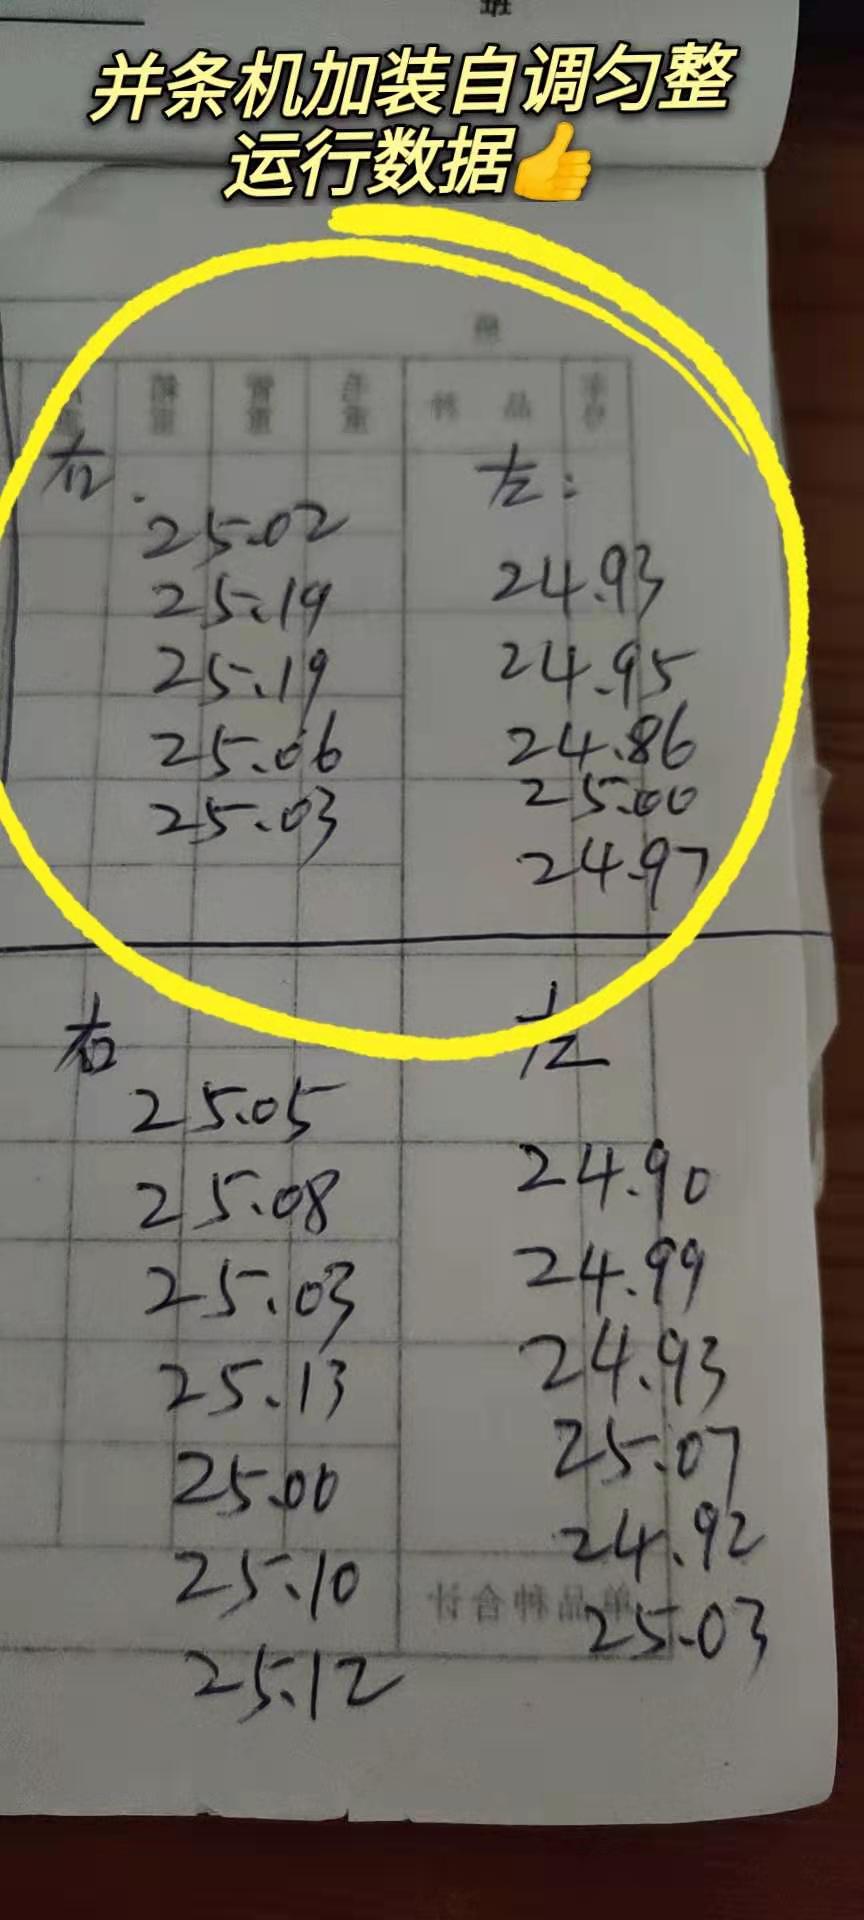 班
并条机加装自调匀整
运行数据👍
毛重
品种
右.
25.02
25.19
25.19
25.06
25.03
左:
24.93
24.95
24.86
25.00
24.97
右
25.05
25.08
25.03
25.13
25.00
25.10
25.12
左
24.90
24.99
24.93
25.07
24.92
25.03
单品种合计